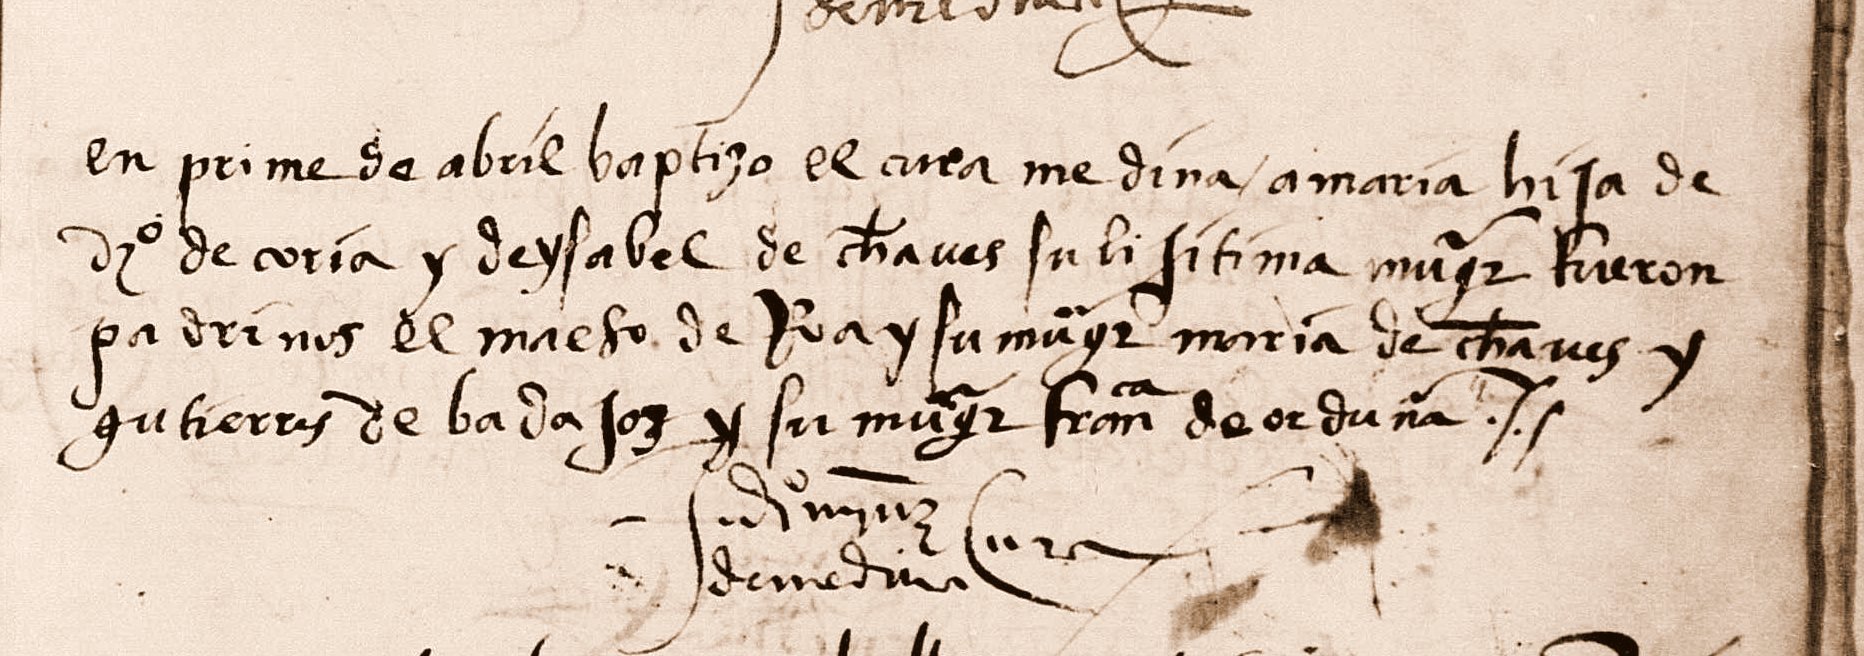 de medina
en prime de abril baptizo el cura medina / a maria hija de
dgº de coria y de ysabel de chaves su lisitima mugr fueron
padrinos el maeso de Roa y su mugr maria de chaves y
gutierres de badajoz y su mugr franca de orduña
Cura
de medina